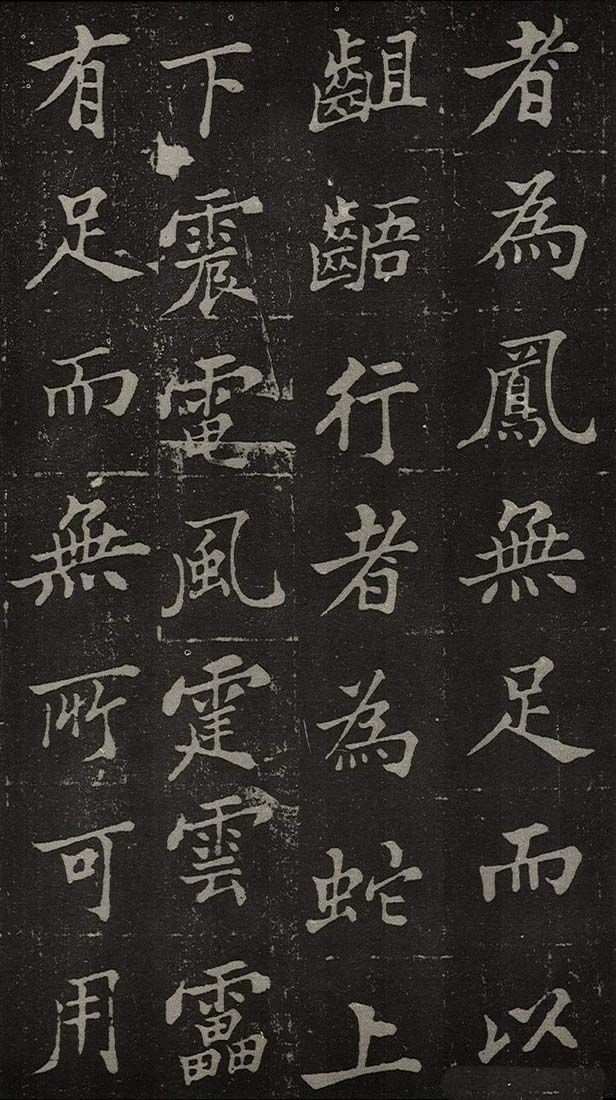 者為鳳無足而以
齟齬行者為蛇上
下震電風霆雲靁
有足而無所可用